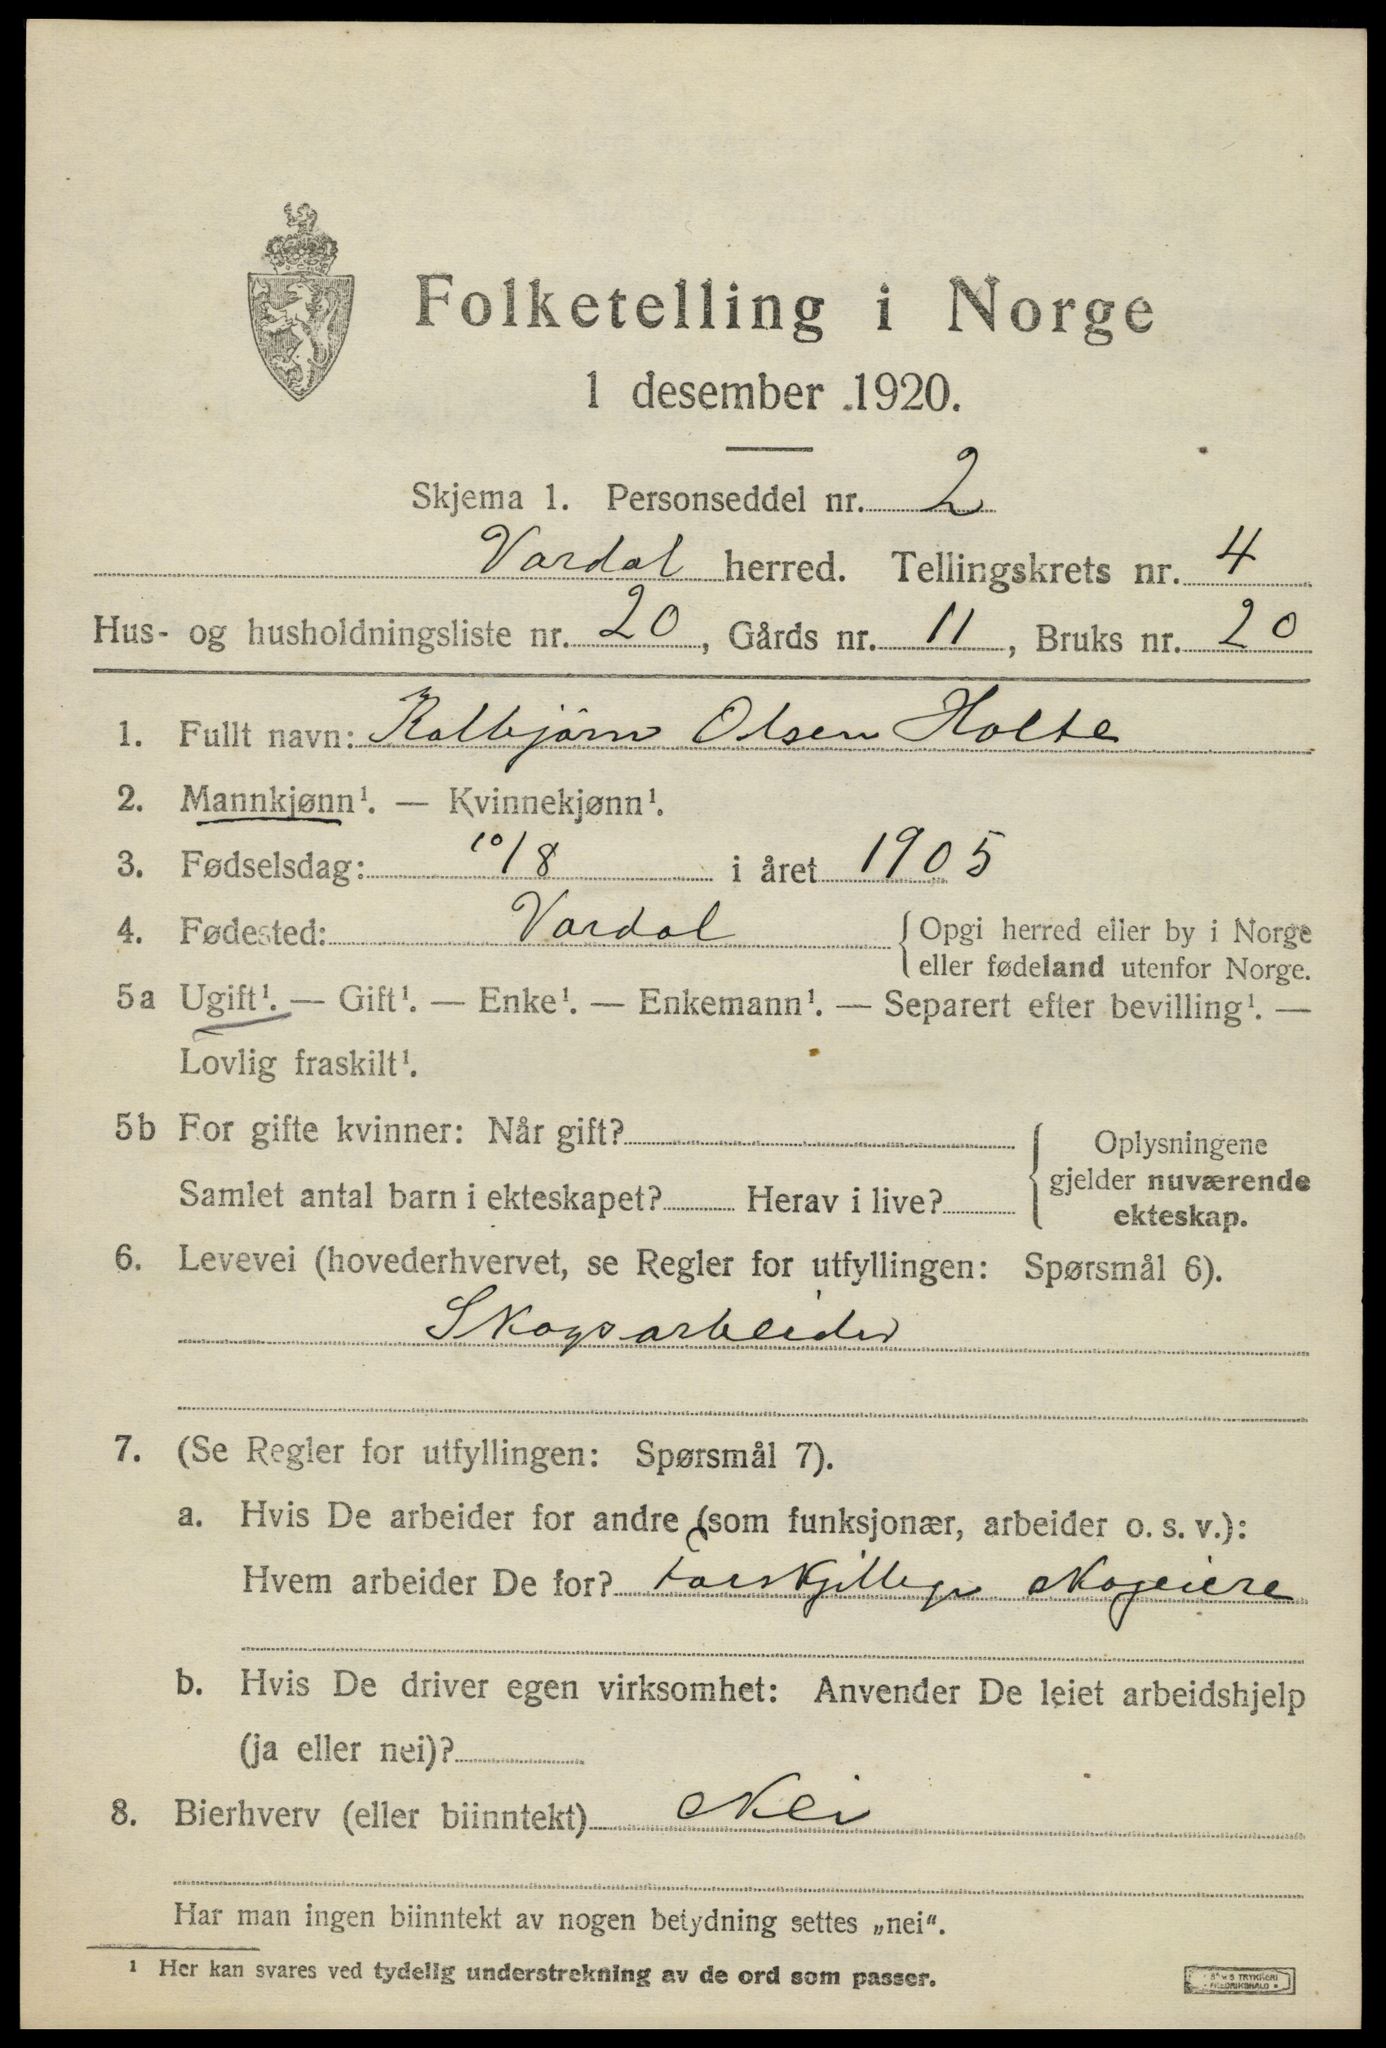 Folketelling i Norge
1 desember 1920.
Skjema 1. Personseddel nr. 2
Vardal herred. Tellingskrets nr. 4
Hus- og husholdningsliste nr. 20, Gårds nr. 11, Bruks nr. 20
1. Fullt navn: Kolbjörn Olsen Holte
2. Mannkjønn¹. — Kvinnekjønn¹.
3. Fødselsdag: 10/8 i året 1905
4. Fødested: Vardal { Opgi herred eller by i Norge
eller fødeland utenfor Norge.
5a Ugift¹. — Gift¹. — Enke¹. — Enkemann¹. — Separert efter bevilling¹. —
Lovlig fraskilt¹.
5b For gifte kvinner: Når gift?
Samlet antal barn i ekteskapet? Herav i live?
Oplysningene
gjelder nuværende
ekteskap.
6. Levevei (hovederhvervet, se Regler for utfyllingen: Spørsmål 6).
Skogsarbeider
7. (Se Regler for utfyllingen: Spørsmål 7).
a. Hvis De arbeider for andre (som funksjonær, arbeider o. s. v.):
Hvem arbeider De for? Forskjellige skogeiere
b. Hvis De driver egen virksomhet: Anvender De leiet arbeidshjelp
(ja eller nei)?
8. Bierhverv (eller biinntekt) Nei
Har man ingen biinntekt av nogen betydning settes „nei“.
¹ Her kan svares ved tydelig understrekning av de ord som passer.
TRYKKERI
FREDRIKSHALD